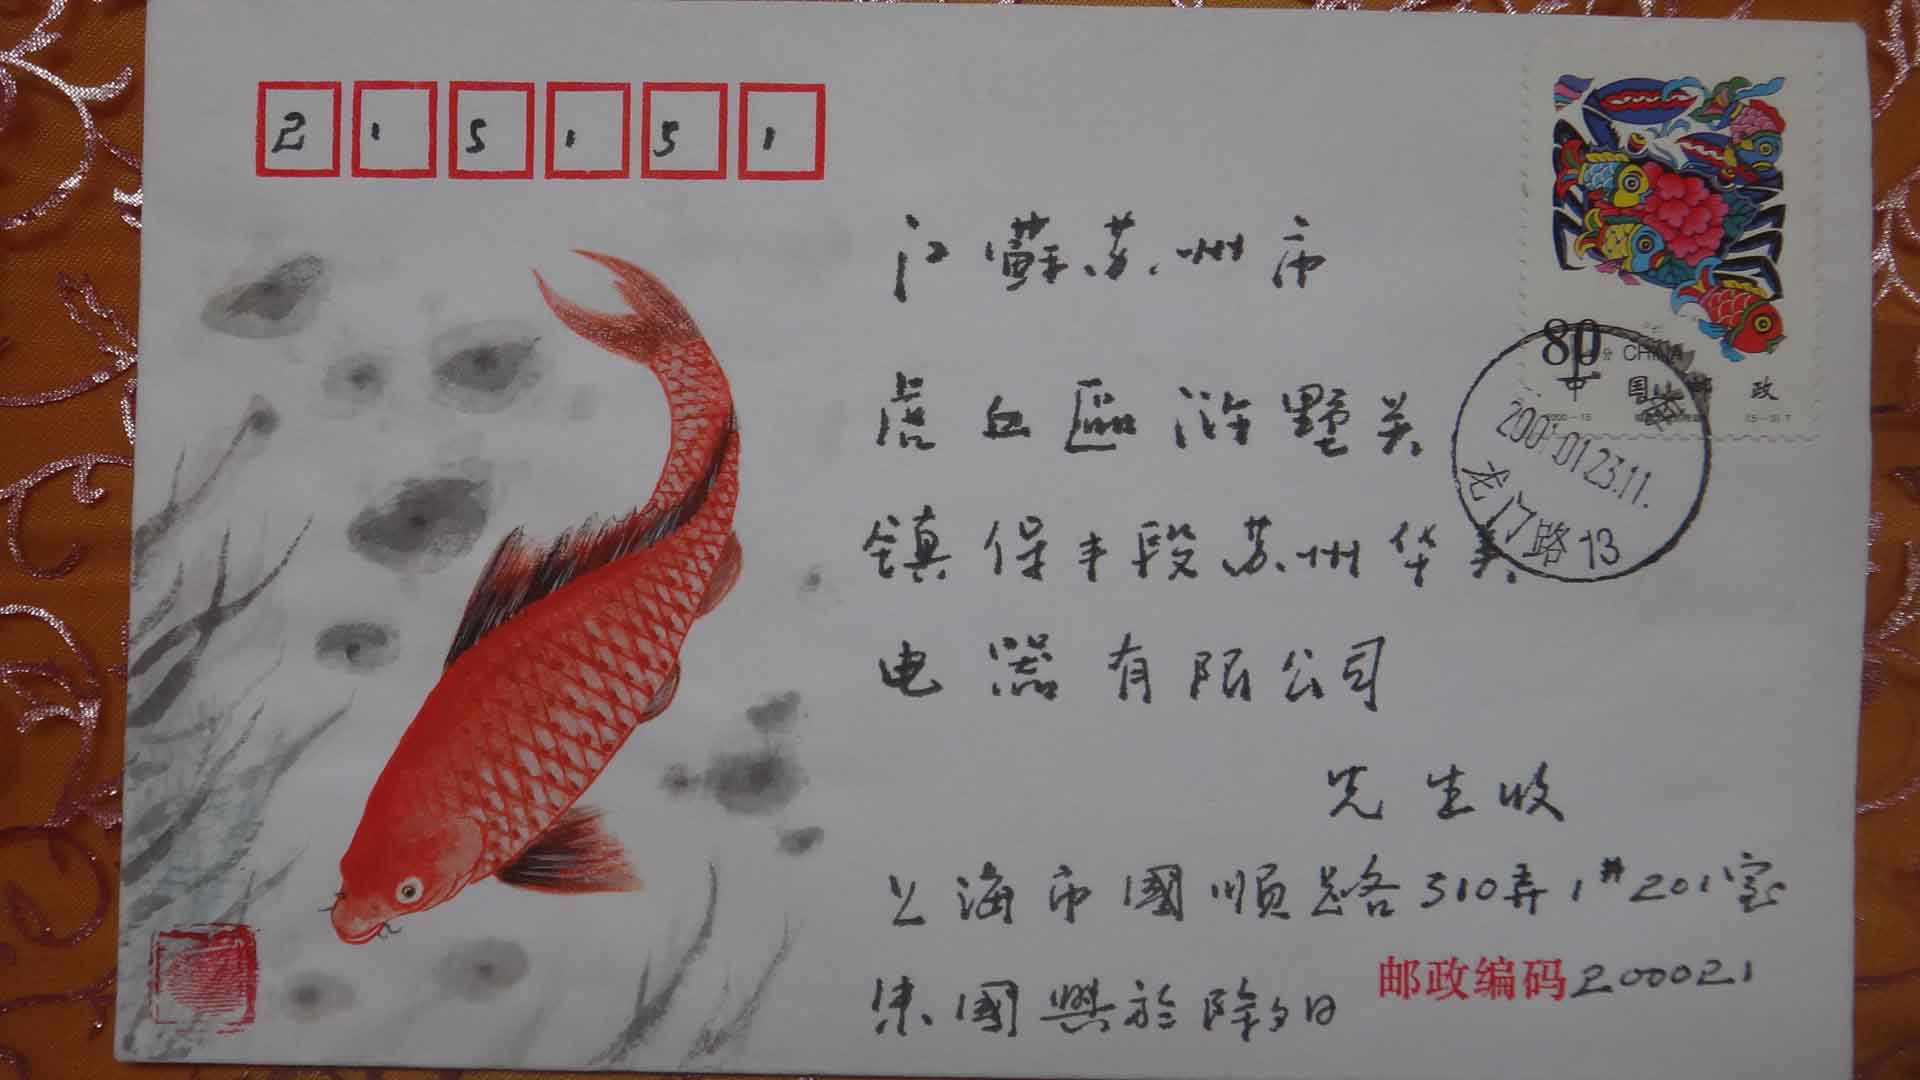 215151
江蘇苏州市
虎丘區浒墅关
鎮保丰段苏州华美
电器有限公司
先生收
上海市國順路310弄1#201室
朱國興於除夕日
邮政编码200021
80分 CHINA
中国邮政
2000-15
(5-3)T
2001.01.23.11.
龙门路13